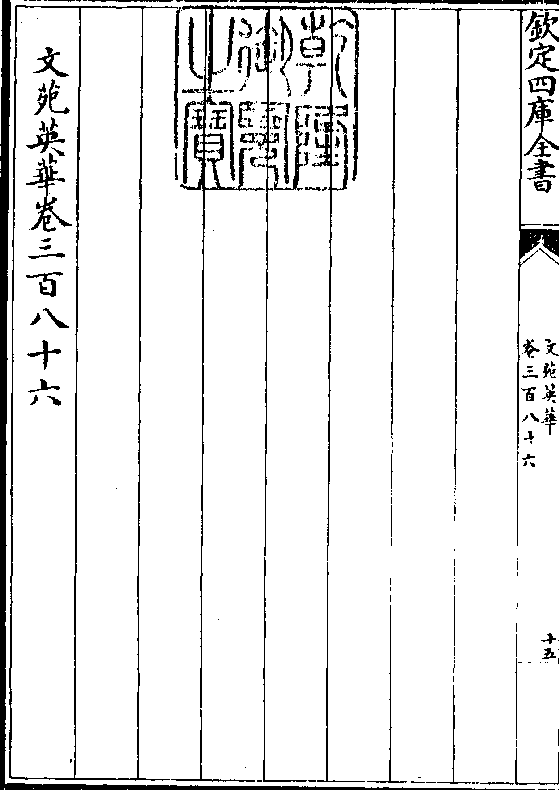 欽定四庫全書
文苑英華
卷三百八十六
十五
乾隆
御覽
之寶
文苑英華卷三百八十六